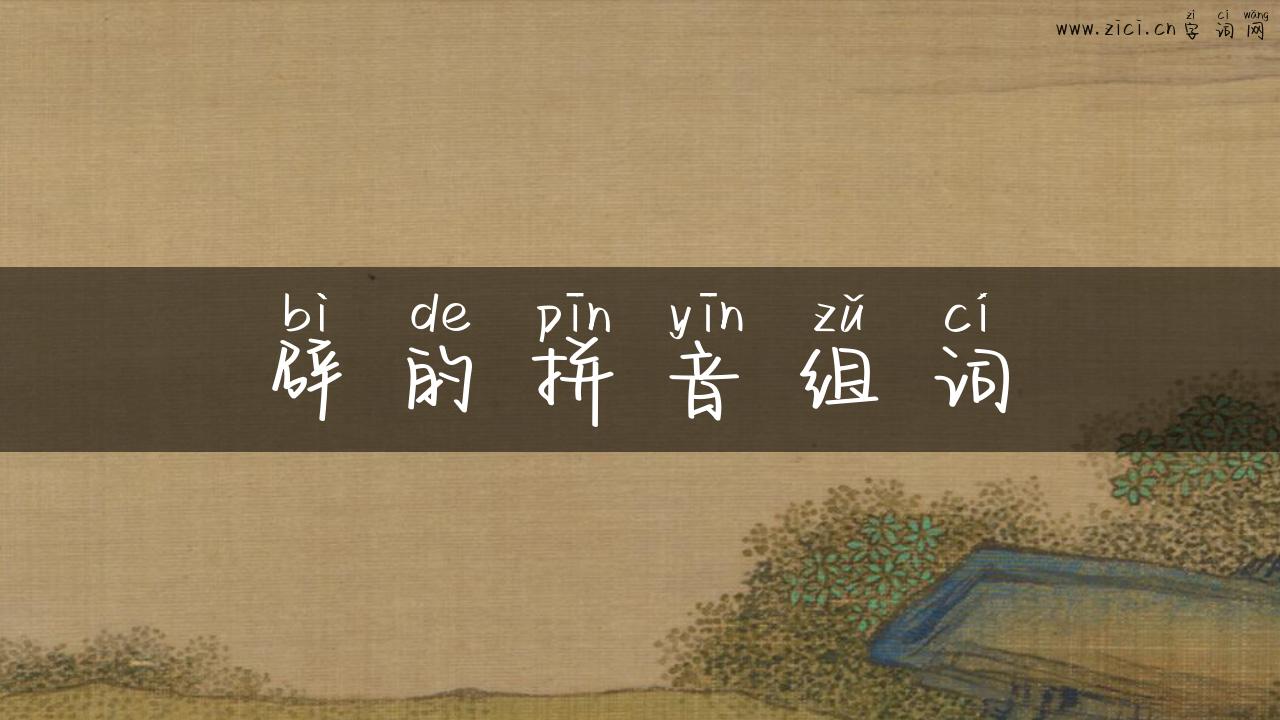 zì cí wǎng
www.zici.cn 字词网
bì de pīn yīn zǔ cí
辟的拼音组词